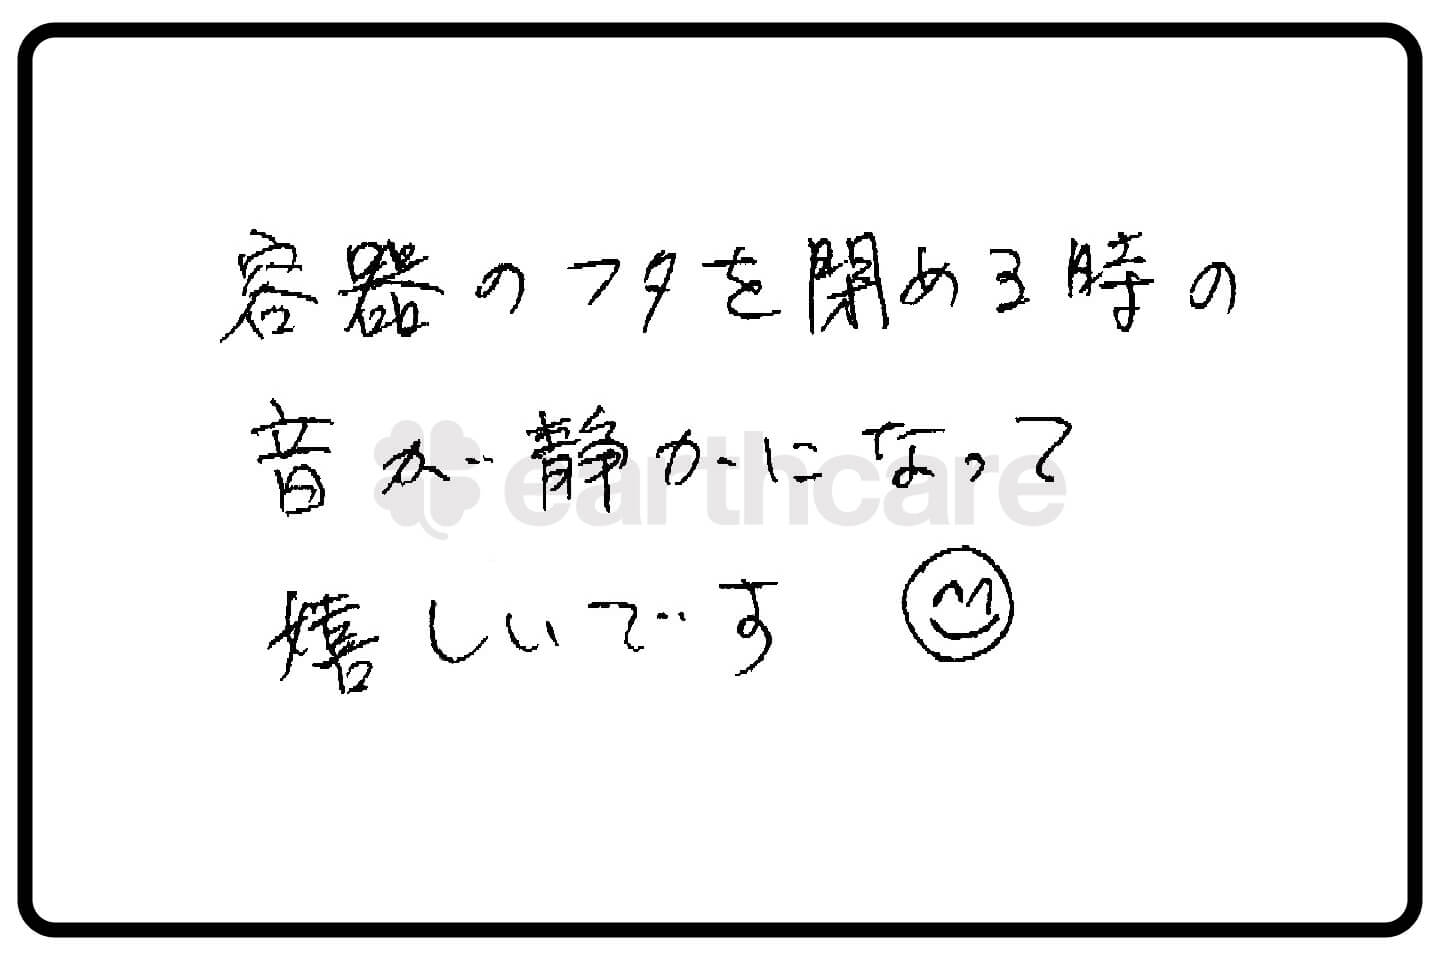 容器のフタを閉める時の
音が静かになって
earthcare
嬉しいです